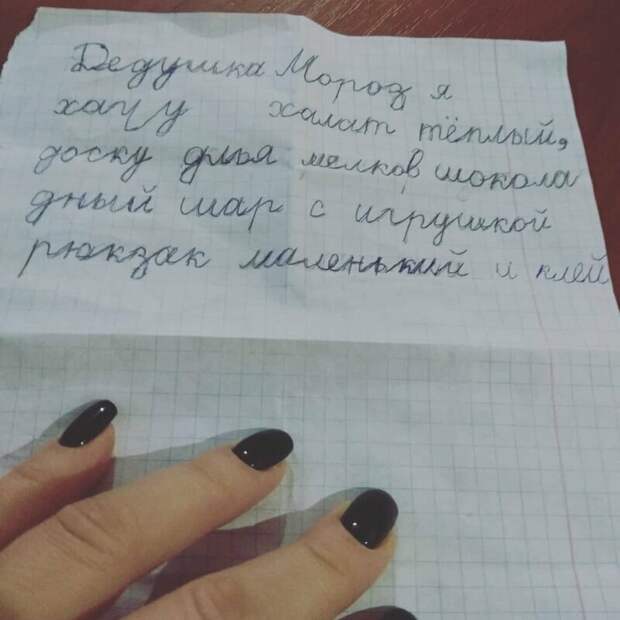 Дедушка Мороз я
хачу халат тёплый,
доску длья мелков шокола
дный шар с игрушкой
рюкзак маленький и клей